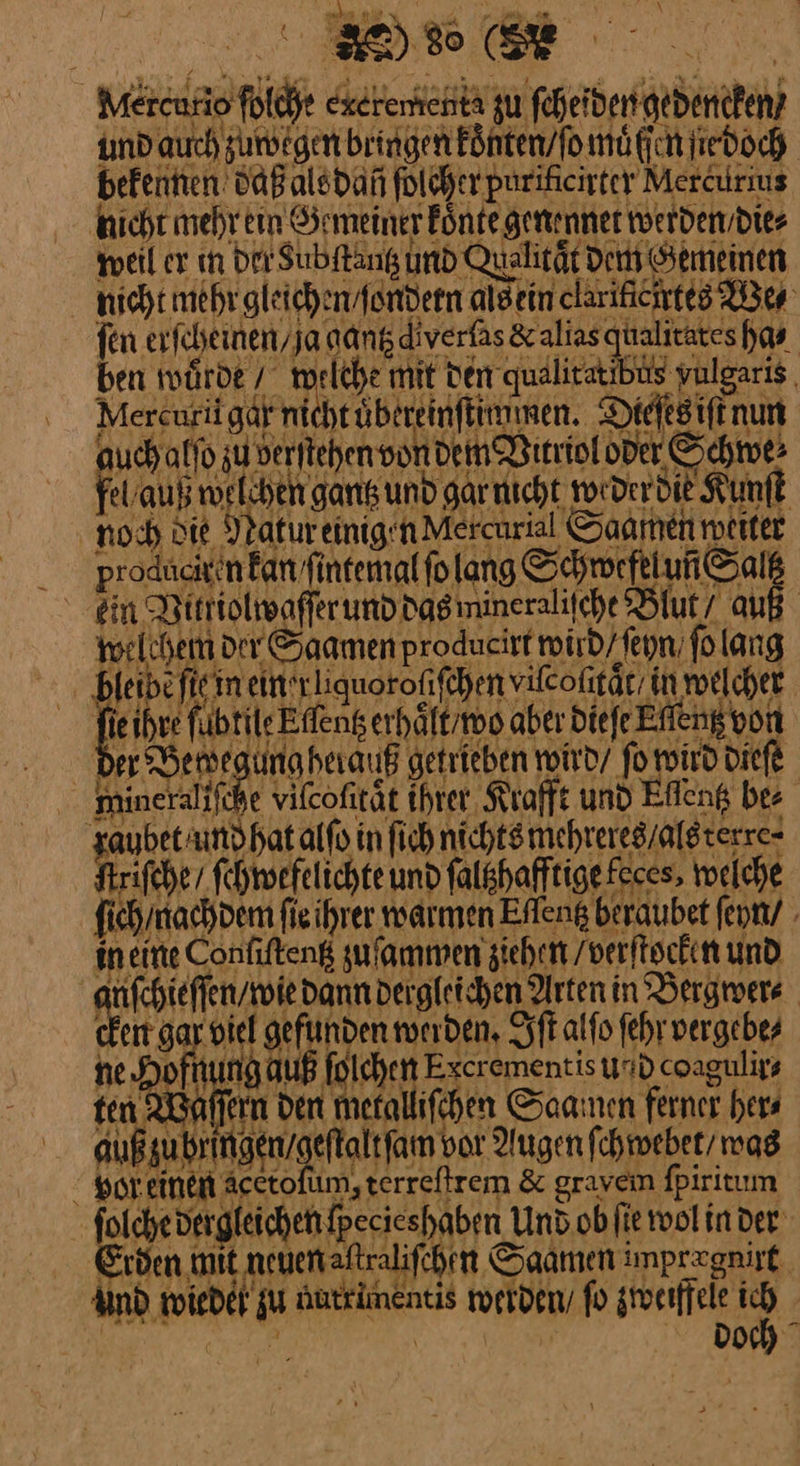 80
Mercurio ſolche excrementa zu ſcheiden gedencken/
und auch zuwegen bringen koͤnten/ſo muͤſſen ſie doch
bekennen daß als dañ ſolcher purificirter Mercurius
nicht mehr ein Gemeiner koͤnte genennet werden/die⸗
weil er in der Subſtantz und Qualitaͤt dem Gemeinen
nicht mehr gleichen/ſondern als ein clarificirtes We⸗
ſen erſcheinen/ja gantz diverſas & alias qualitates ha⸗
ben wuͤrde / welche mit den qualitatibus vulgaris
Mercurii gar nicht uͤbereinſtimmen. Dieſes iſt nun
auch alſo zu verſtehen von dem Vitriol oder Schwe⸗
fel/auß welchen gantz und gar nicht weder die Kunſt
noch die Natur einigen Mercurial Saamen weiter
produciren kan/ſintemal ſo lang Schwefel uñ Saltz
ein Vitriolwaſſer und das mineraliſche Blut / auß
welchem der Saamen producirt wird/ſeyn/ ſo lang
bleibẽ ſie in einer liquoroſiſchen viſcoſitaͤt/ in welcher
ſie ihre ſubtile Eſſentz erhaͤlt/wo aber dieſe Eſſentz von
der Bewegung herauß getrieben wird/ ſo wird dieſe
mineraliſche viſcoſitaͤt ihrer Krafft und Eſſentz be⸗
raubet/und hat alſo in ſich nichts mehreres/als terre-
ſtriſche / ſchwefelichte und ſaltzhafftige feces, welche
ſich/nachdem ſie ihrer warmen Eſſentz beraubet ſeyn/
in eine Conſiſtentz zuſammen ziehen /verſtocken und
anſchieſſen/wie dann dergleichen Arten in Bergwer⸗
cken gar viel gefunden werden. Iſt alſo ſehr vergebe⸗
ne Hofnung auß ſolchen Excrementis und coagulir⸗
ten Waſſern den metalliſchen Saamen ferner her⸗
auß zu bringen/geſtaltſam vor Augen ſchwebet/ was
vor einen acetoſum, terreſtrem & gravem ſpiritum
ſolche dergleichen ſpecies haben Und ob ſie wol in der
Erden mit neuen aſtraliſchen Saamen imprægnirt
und wieder zu nutrimentis werden/ ſo zweiffele ich
doch